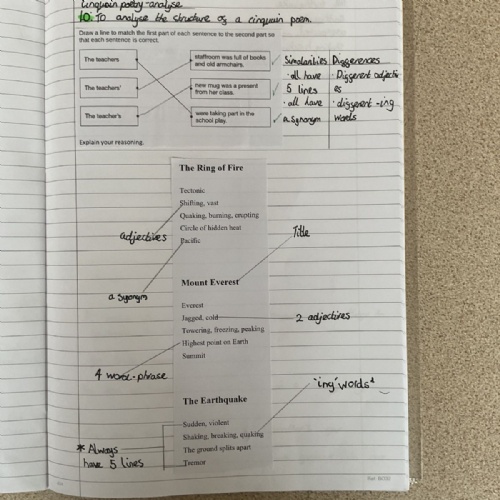 Cinquain poetry-analyse
LO. To analyse the structure of a cinquain poem.
Draw a line to match the first part of each sentence to the second part so
that each sentence is correct.
The teachers
The teachers'
The teacher's
staffroom was full of books
and old armchairs.
new mug was a present
from her class.
were taking part in the
school play.
Explain your reasoning.
Similarities
·all have
5 lines
·all have
a synonym
Differences
·Different adjecti
es
·different -ing
words
The Ring of Fire
Tectonic
Shifting, vast
Quaking, burning, erupting
Circle of hidden heat
Pacific
adjectives
a synonym
Title
Mount Everest
Everest
Jagged, cold
Towering, freezing, peaking
Highest point on Earth
Summit
2 adjectives
4 word-phrase
The Earthquake
Sudden, violent
Shaking, breaking, quaking
The ground splits apart
Tremor
'ing' words
* Always
have 5 lines